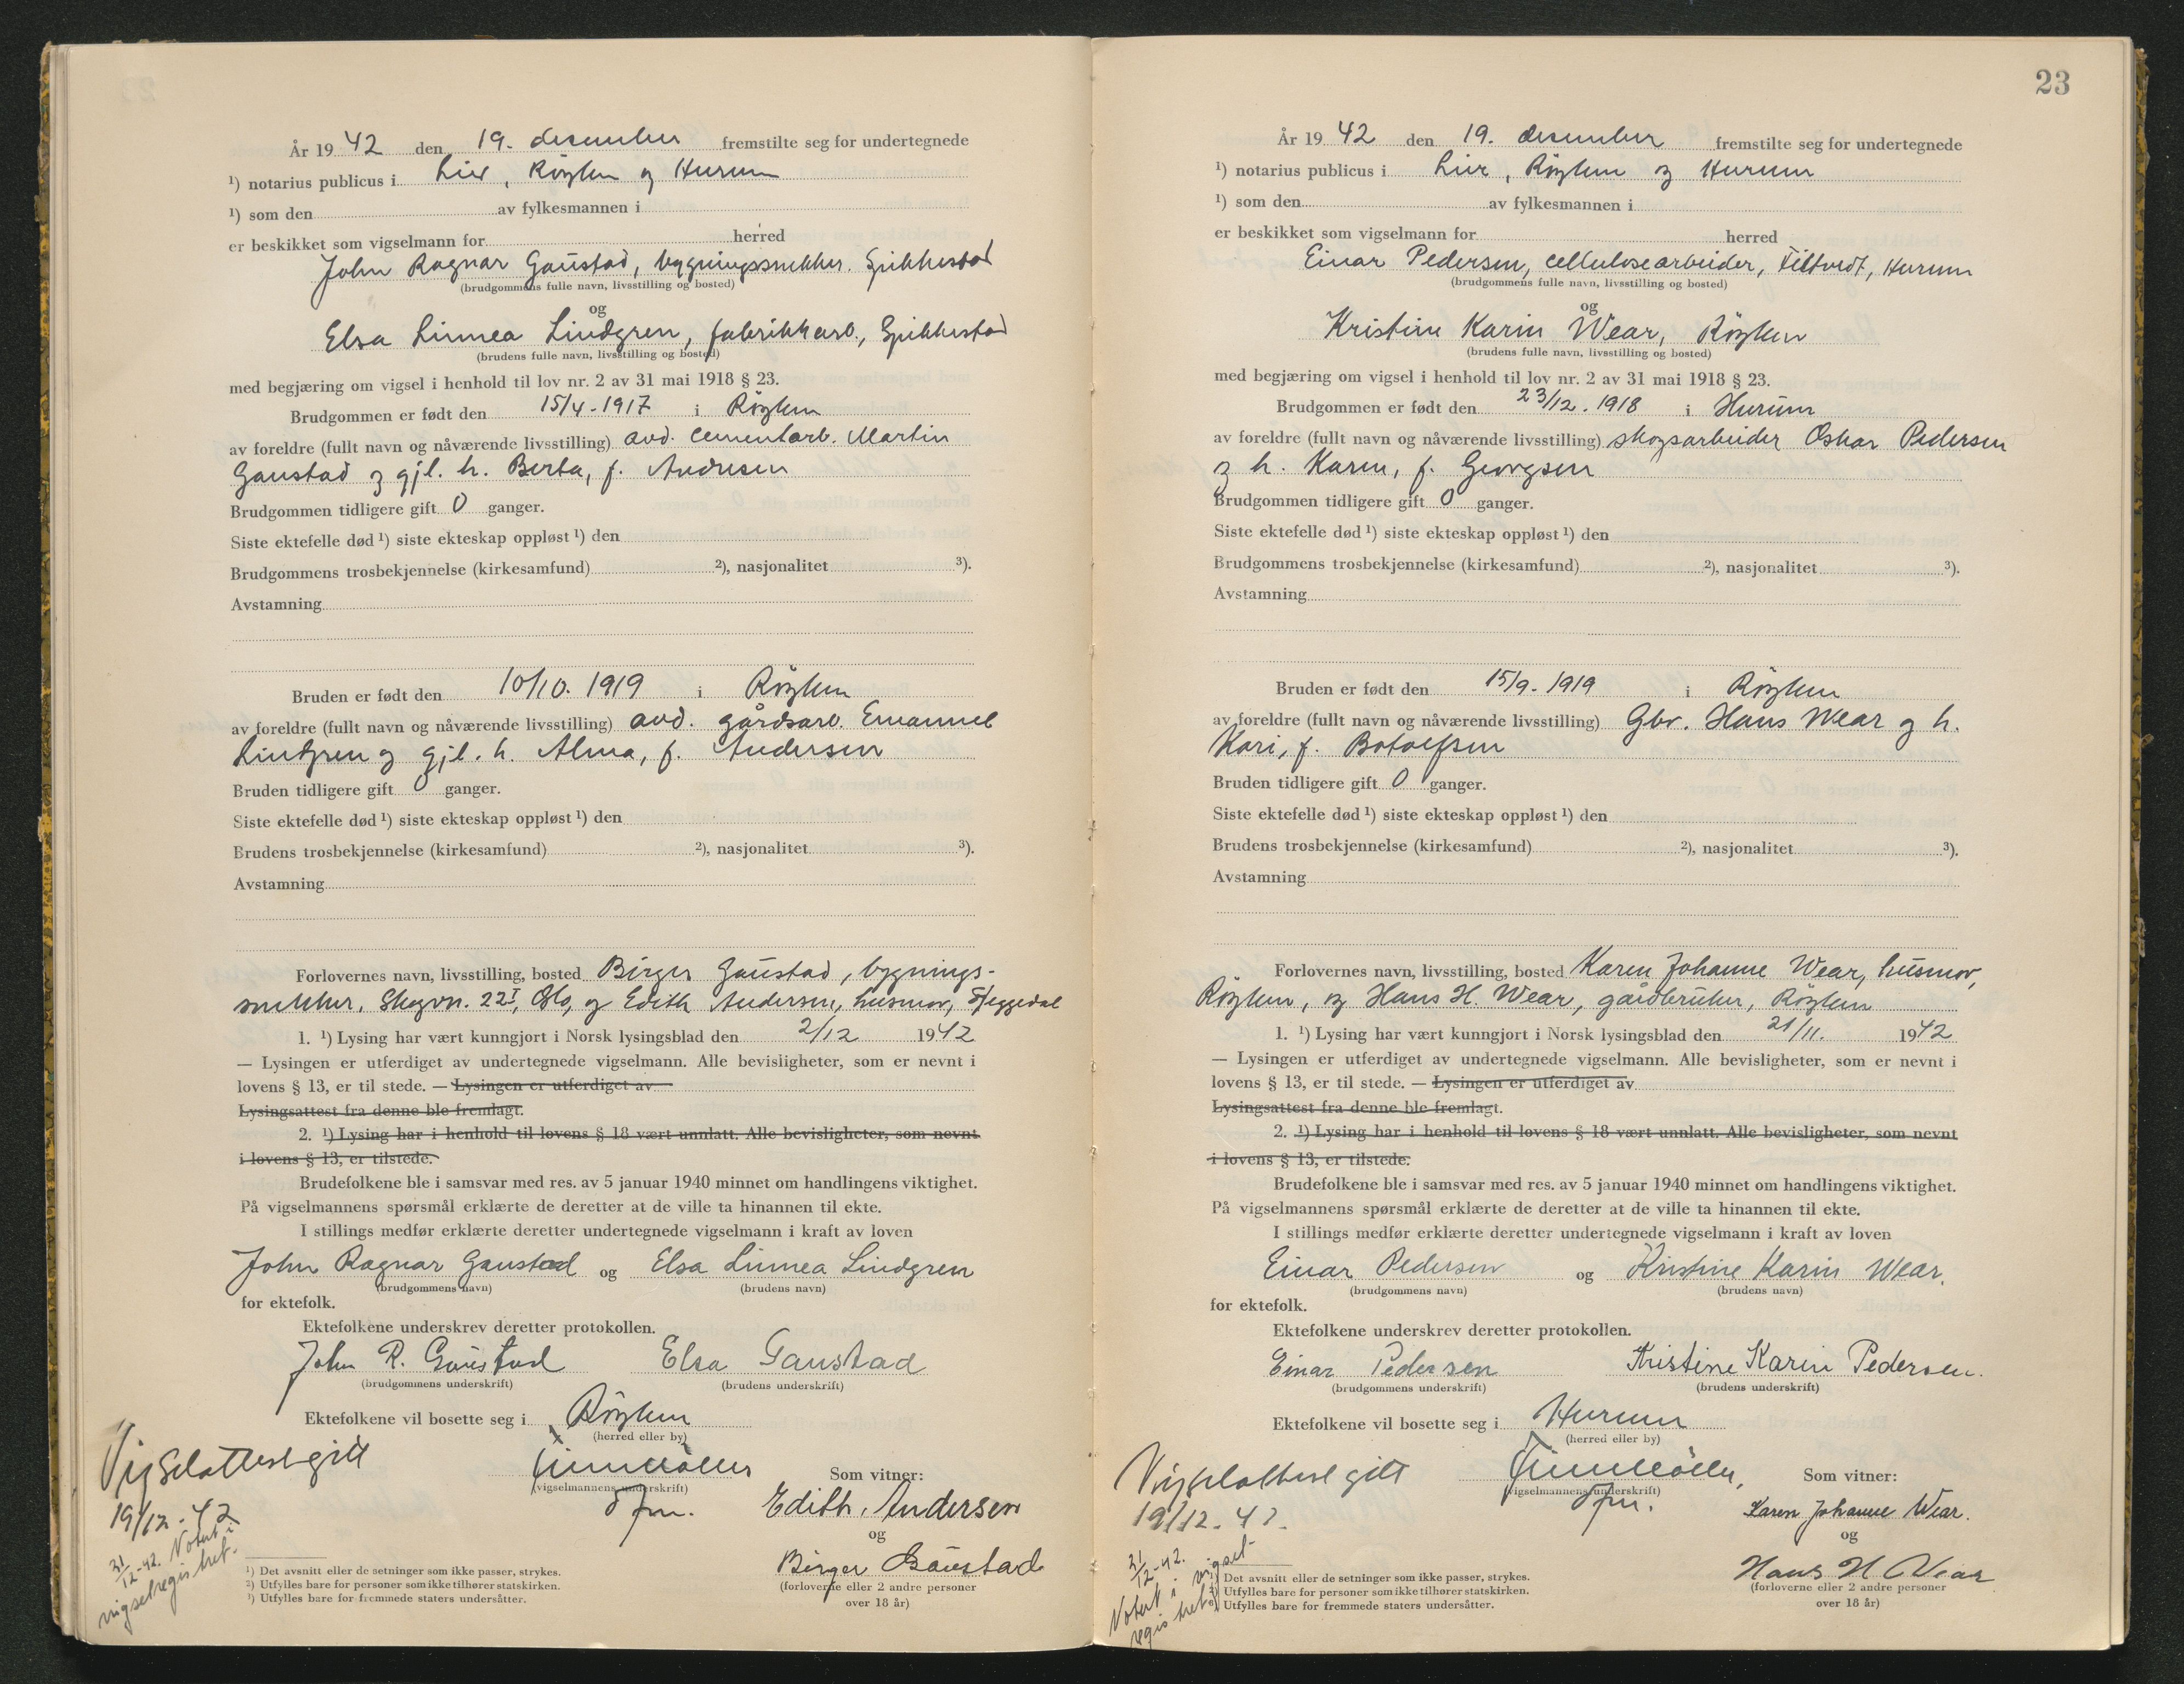 År 19 42 den 19. desember fremstilte seg for undertegnede
¹) notarius publicus i Lier, Røyken og Hurum
¹) som den av fylkesmannen i
er beskikket som vigselmann for herred
John Ragnar Gaustad, bygningssnekker. Spikkestad
(brudgommens fulle navn, livsstilling og bosted)
og
Elsa Linnea Lindgren, fabrikkarb., Spikkestad
(brudens fulle navn, livsstilling og bosted)
med begjæring om vigsel i henhold til lov nr. 2 av 31 mai 1918 § 23.
Brudgommen er født den 15/4-1917 i Røyken
av foreldre (fullt navn og nåværende livsstilling) avd. cementarb. Martin
Gaustad og gjl. h. Berta, f. Andresen
Brudgommen tidligere gift 0 ganger.
Siste ektefelle død ¹) siste ekteskap oppløst ¹) den
Brudgommens trosbekjennelse (kirkesamfund) ²), nasjonalitet ³).
Avstamning
Bruden er født den 10/10. 1919 i Røyken
av foreldre (fullt navn og nåværende livsstilling) avd. gårdsarb. Emanuel
Lindgren og gjl. h. Alma, f. Andersen
Bruden tidligere gift 0 ganger.
Siste ektefelle død ¹) siste ekteskap oppløst ¹) den
Brudens trosbekjennelse (kirkesamfund) ²), nasjonalitet ³).
Avstamning
Forlovernes navn, livsstilling, bosted Birger Gaustad, bygnings-
snekker, Skogvn. 22 I, Oslo, og Edith Andersen, husmor, Sjeggedal
1. ¹) Lysing har vært kunngjort i Norsk lysingsblad den 2/12 1942
— Lysingen er utferdiget av undertegnede vigselmann. Alle bevisligheter, som er nevnt i
lovens § 13, er til stede. — Lysingen er utferdiget av
Lysingsattest fra denne ble fremlagt.
2. ¹) Lysing har i henhold til lovens § 18 vært unnlatt. Alle bevisligheter, som nevnt
i lovens § 13, er tilstede.
Brudefolkene ble i samsvar med res. av 5 januar 1940 minnet om handlingens viktighet.
På vigselmannens spørsmål erklærte de deretter at de ville ta hinannen til ekte.
I stillings medfør erklærte deretter undertegnede vigselmann i kraft av loven
John Ragnar Gaustad og Elsa Linnea Lindgren
(brudgommens navn) (brudens navn)
for ektefolk.
Ektefolkene underskrev deretter protokollen.
John R. Gaustad Elsa Gaustad
(brudgommens underskrift) (brudens underskrift)
Ektefolkene vil bosette seg i Røyken
(herred eller by)
Vigselattest gitt
19/12-42
(vigselmannens underskrift)
Som vitner:
Edith. Andersen
og
Birger Gaustad
(forloverne eller 2 andre personer
over 18 år)
31/12-42. Notert i
vigselregistret.
¹) Det avsnitt eller de setninger som ikke passer, strykes.
²) Utfylles bare for personer som ikke tilhører statskirken.
³) Utfylles bare for fremmede staters undersåtter.
23
År 19 42 den 19. desember fremstilte seg for undertegnede
¹) notarius publicus i Lier, Røyken og Hurum
¹) som den av fylkesmannen i
er beskikket som vigselmann for herred
Einar Pedersen, cellulosearbeider, Filtvedt, Hurum
(brudgommens fulle navn, livsstilling og bosted)
og
Kristine Karin Wear, Røyken
(brudens fulle navn, livsstilling og bosted)
med begjæring om vigsel i henhold til lov nr. 2 av 31 mai 1918 § 23.
Brudgommen er født den 23/12. 1918 i Hurum
av foreldre (fullt navn og nåværende livsstilling) skogsarbeider Oskar Pedersen
og h. Karen, f. Georgsen
Brudgommen tidligere gift 0 ganger.
Siste ektefelle død ¹) siste ekteskap oppløst ¹) den
Brudgommens trosbekjennelse (kirkesamfund) ²), nasjonalitet ³).
Avstamning
Bruden er født den 15/9-1919 i Røyken
av foreldre (fullt navn og nåværende livsstilling) Gbr. Hans Wear og h.
Kari, f. Botolfsen
Bruden tidligere gift 0 ganger.
Siste ektefelle død ¹) siste ekteskap oppløst ¹) den
Brudens trosbekjennelse (kirkesamfund) ²), nasjonalitet ³).
Avstamning
Forlovernes navn, livsstilling, bosted Karen Johanne Wear, husmor,
Røyken, og Hans H. Wear, gårdbruker, Røyken
1. ¹) Lysing har vært kunngjort i Norsk lysingsblad den 21/11. 1942
— Lysingen er utferdiget av undertegnede vigselmann. Alle bevisligheter, som er nevnt i
lovens § 13, er til stede. — Lysingen er utferdiget av
Lysingsattest fra denne ble fremlagt.
2. ¹) Lysing har i henhold til lovens § 18 vært unnlatt. Alle bevisligheter, som nevnt
i lovens § 13, er tilstede.
Brudefolkene ble i samsvar med res. av 5 januar 1940 minnet om handlingens viktighet.
På vigselmannens spørsmål erklærte de deretter at de ville ta hinannen til ekte.
I stillings medfør erklærte deretter undertegnede vigselmann i kraft av loven
Einar Pedersen og Kristine Karin Wear.
(brudgommens navn) (brudens navn)
for ektefolk.
Ektefolkene underskrev deretter protokollen.
Einar Pedersen Kristine Karin Pedersen.
(brudgommens underskrift) (brudens underskrift)
Ektefolkene vil bosette seg i Hurum
(herred eller by)
Vigselattest gitt
19/12-42.
(vigselmannens underskrift)
Som vitner:
Karen Johanne Wear.
og
Hans H Wear
(forloverne eller 2 andre personer
over 18 år)
31/12-42.
Notert i vigsel-
registret.
¹) Det avsnitt eller de setninger som ikke passer, strykes.
²) Utfylles bare for personer som ikke tilhører statskirken.
³) Utfylles bare for fremmede staters undersåtter.